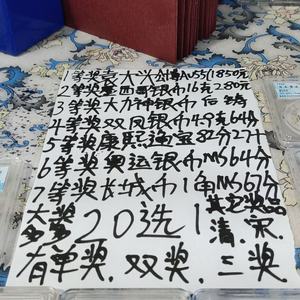 1等奖 袁大头 AU55 1850元
2等奖 墨西哥银币16克280元
3等奖 大力神银币 后铸
4等奖 双凤银币49克64分
5等奖 康熙通宝82分27
6等奖 奥运银币MS64分
7等奖 长城币1角MS67分
20选1 其它奖品
清.宋
有单奖.双奖.三奖